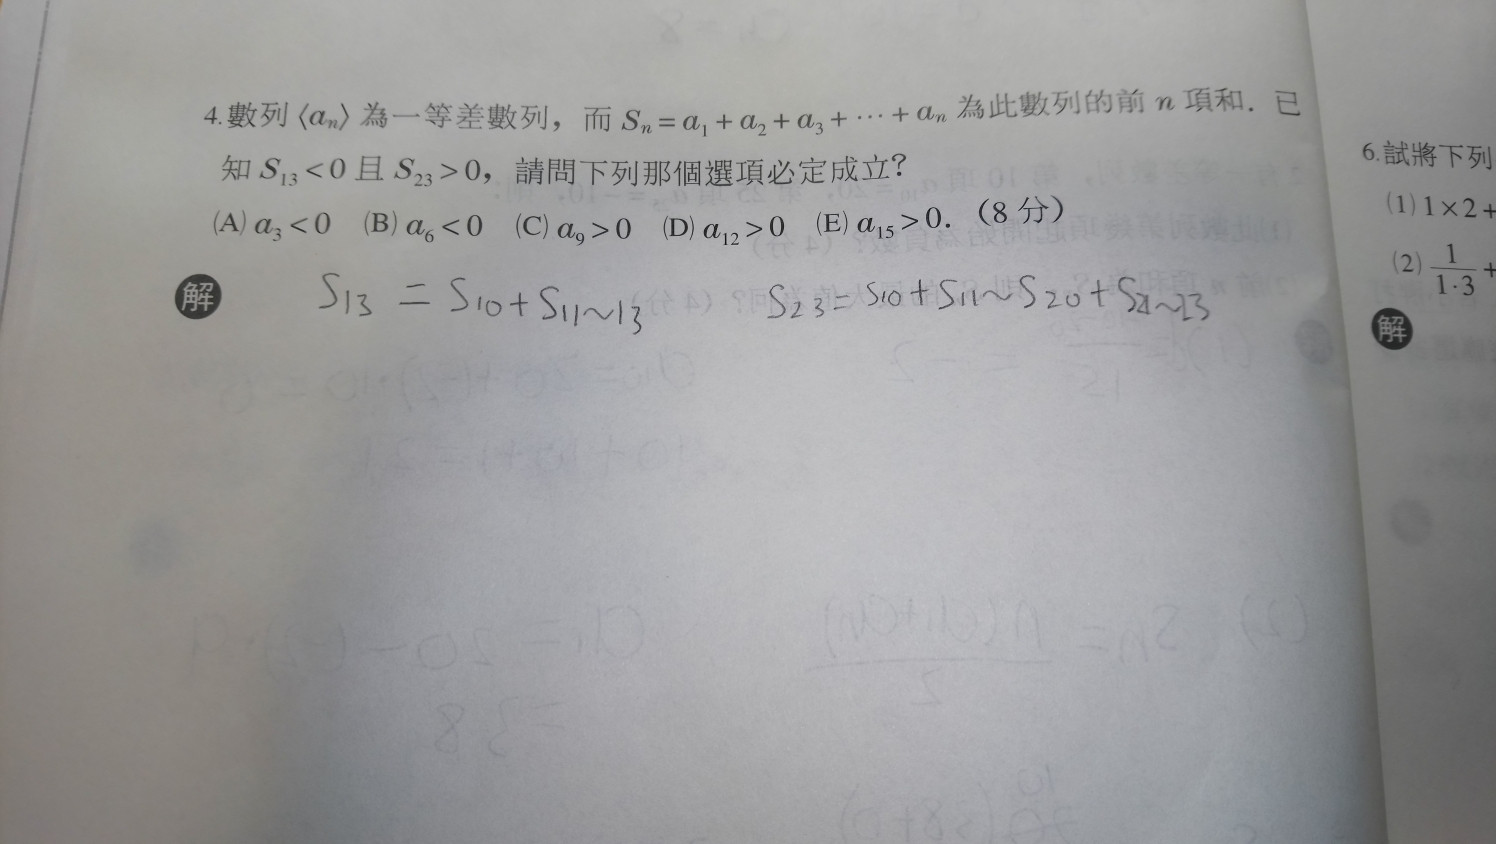 4.數列⟨aₙ⟩為一等差數列，而 Sₙ=a₁+a₂+a₃+⋯+aₙ 為此數列的前 n 項和．已
知 S₁₃<0 且 S₂₃>0，請問下列那個選項必定成立？
(A) a₃<0 (B) a₆<0 (C) a₉>0 (D) a₁₂>0 (E) a₁₅>0．（8 分）
解 S₁₃ = S₁₀+S₁₁～₁₃ S₂₃=S₁₀+S₁₁～S₂₀+S₂₁～₂₃
6.試將下列
(1) 1×2+
(2) 1/(1·3) +
解